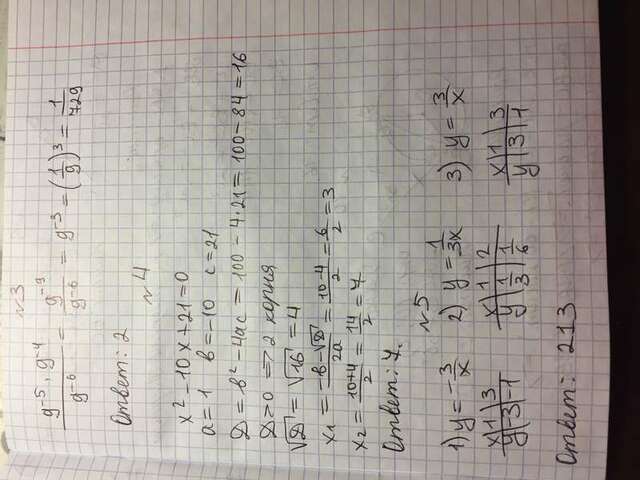 №3
9⁻⁵ · 9⁻⁴ / 9⁻⁶ = 9⁻⁹ / 9⁻⁶ = 9⁻³ = (1/9)³ = 1/729
Ответ: 2
№4
x² - 10x + 21 = 0
a = 1 в = -10 c = 21
Д = в² - 4ac = 100 - 4·21 = 100 - 84 = 16
Д > 0 => 2 корня
√Д = √16 = 4
x₁ = -в-√Д / 2a = 10-4 / 2 = 6/2 = 3
x₂ = 10+4 / 2 = 14/2 = 7
Ответ: 7.
№5
1) y = -3/x 2) y = 1/3x 3) y = 3/x
x | 1 | 3 x | 1 | 2 x | 1 | 3
y | -3 | -1 y | 1/3 | 1/6 y | 3 | 1
Ответ: 213